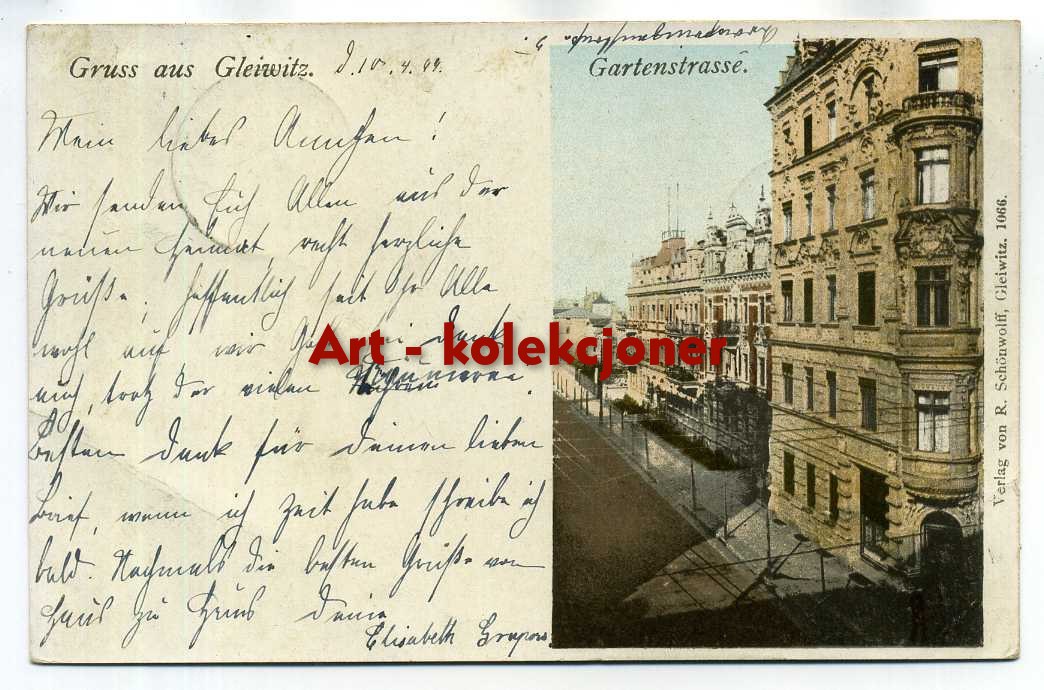 Gruss aus Gleiwitz. d. 10. 4. 99.
Gartenstrasse.
Mein liebes Annchen!
Wir senden Euch Allen aus der
neuen Heimat, recht herzliche
Grüße, hoffentlich seit Ihr Alle
wohl auf, wir Gott sei Dank
auch, trotz der vielen
Besten Dank für Deinen lieben
Brief, wenn ich Zeit habe schreibe ich
bald. Nochmals die besten Grüße von
Haus zu Haus Deine
Elisabeth
Art - kolekcjoner
Verlag von R. Schönwolff, Gleiwitz. 1066.